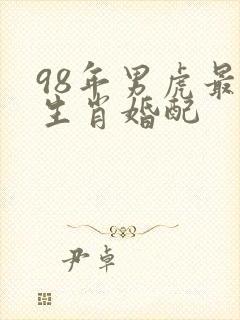 98年男虎最
生肖婚配
尹卓